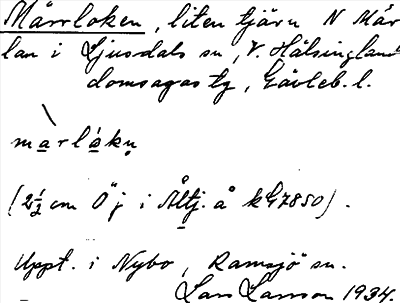 Mårrloken, liten tjärn N Mår
lan i Ljusdals sn, V. Hälsingland
domsagas tg, Gävleb. l.
màrlákų
(2½ cm Ö j i Åltj. å kG7850).
Uppt. i Nybo, Ramsjö sn.
Lars Larsson 1934.